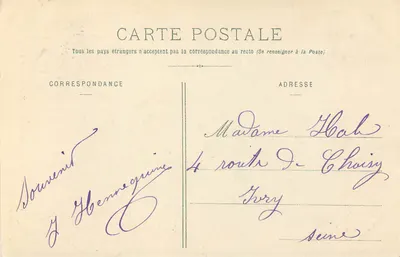 CARTE POSTALE
Tous les pays étrangers n'acceptent pas la correspondance au recto (Se renseigner à la Poste)
CORRESPONDANCE
ADRESSE
Souvenir
J Hennequine
Madame
4 route de Choisy
Ivry
Seine